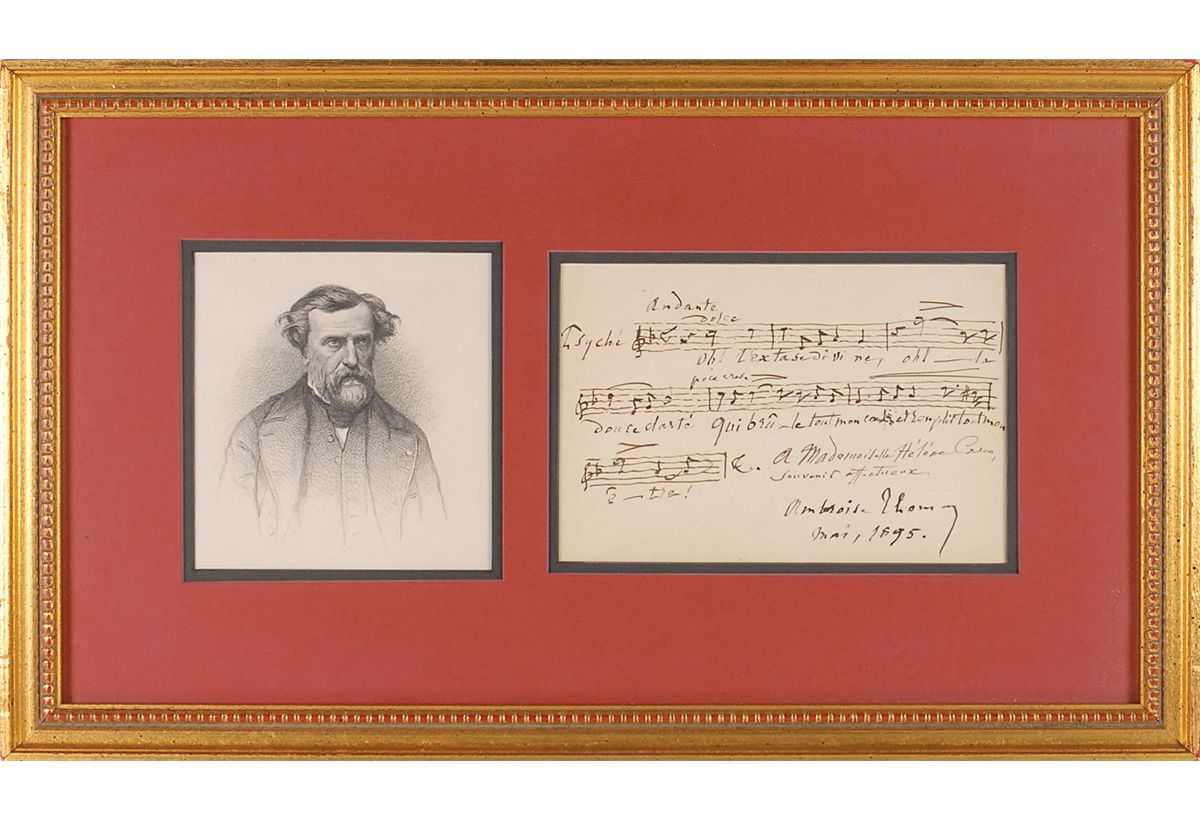 Andante
dolce
Psyché
Oh! l'extase divine, oh! — la
poco cresc
douce clarté qui brû — le tout mon et remplit tout mon
ê — tre!
&. A Mademoiselle Hélène
souvenir affectueux
Ambroise Thomas
mai, 1895.